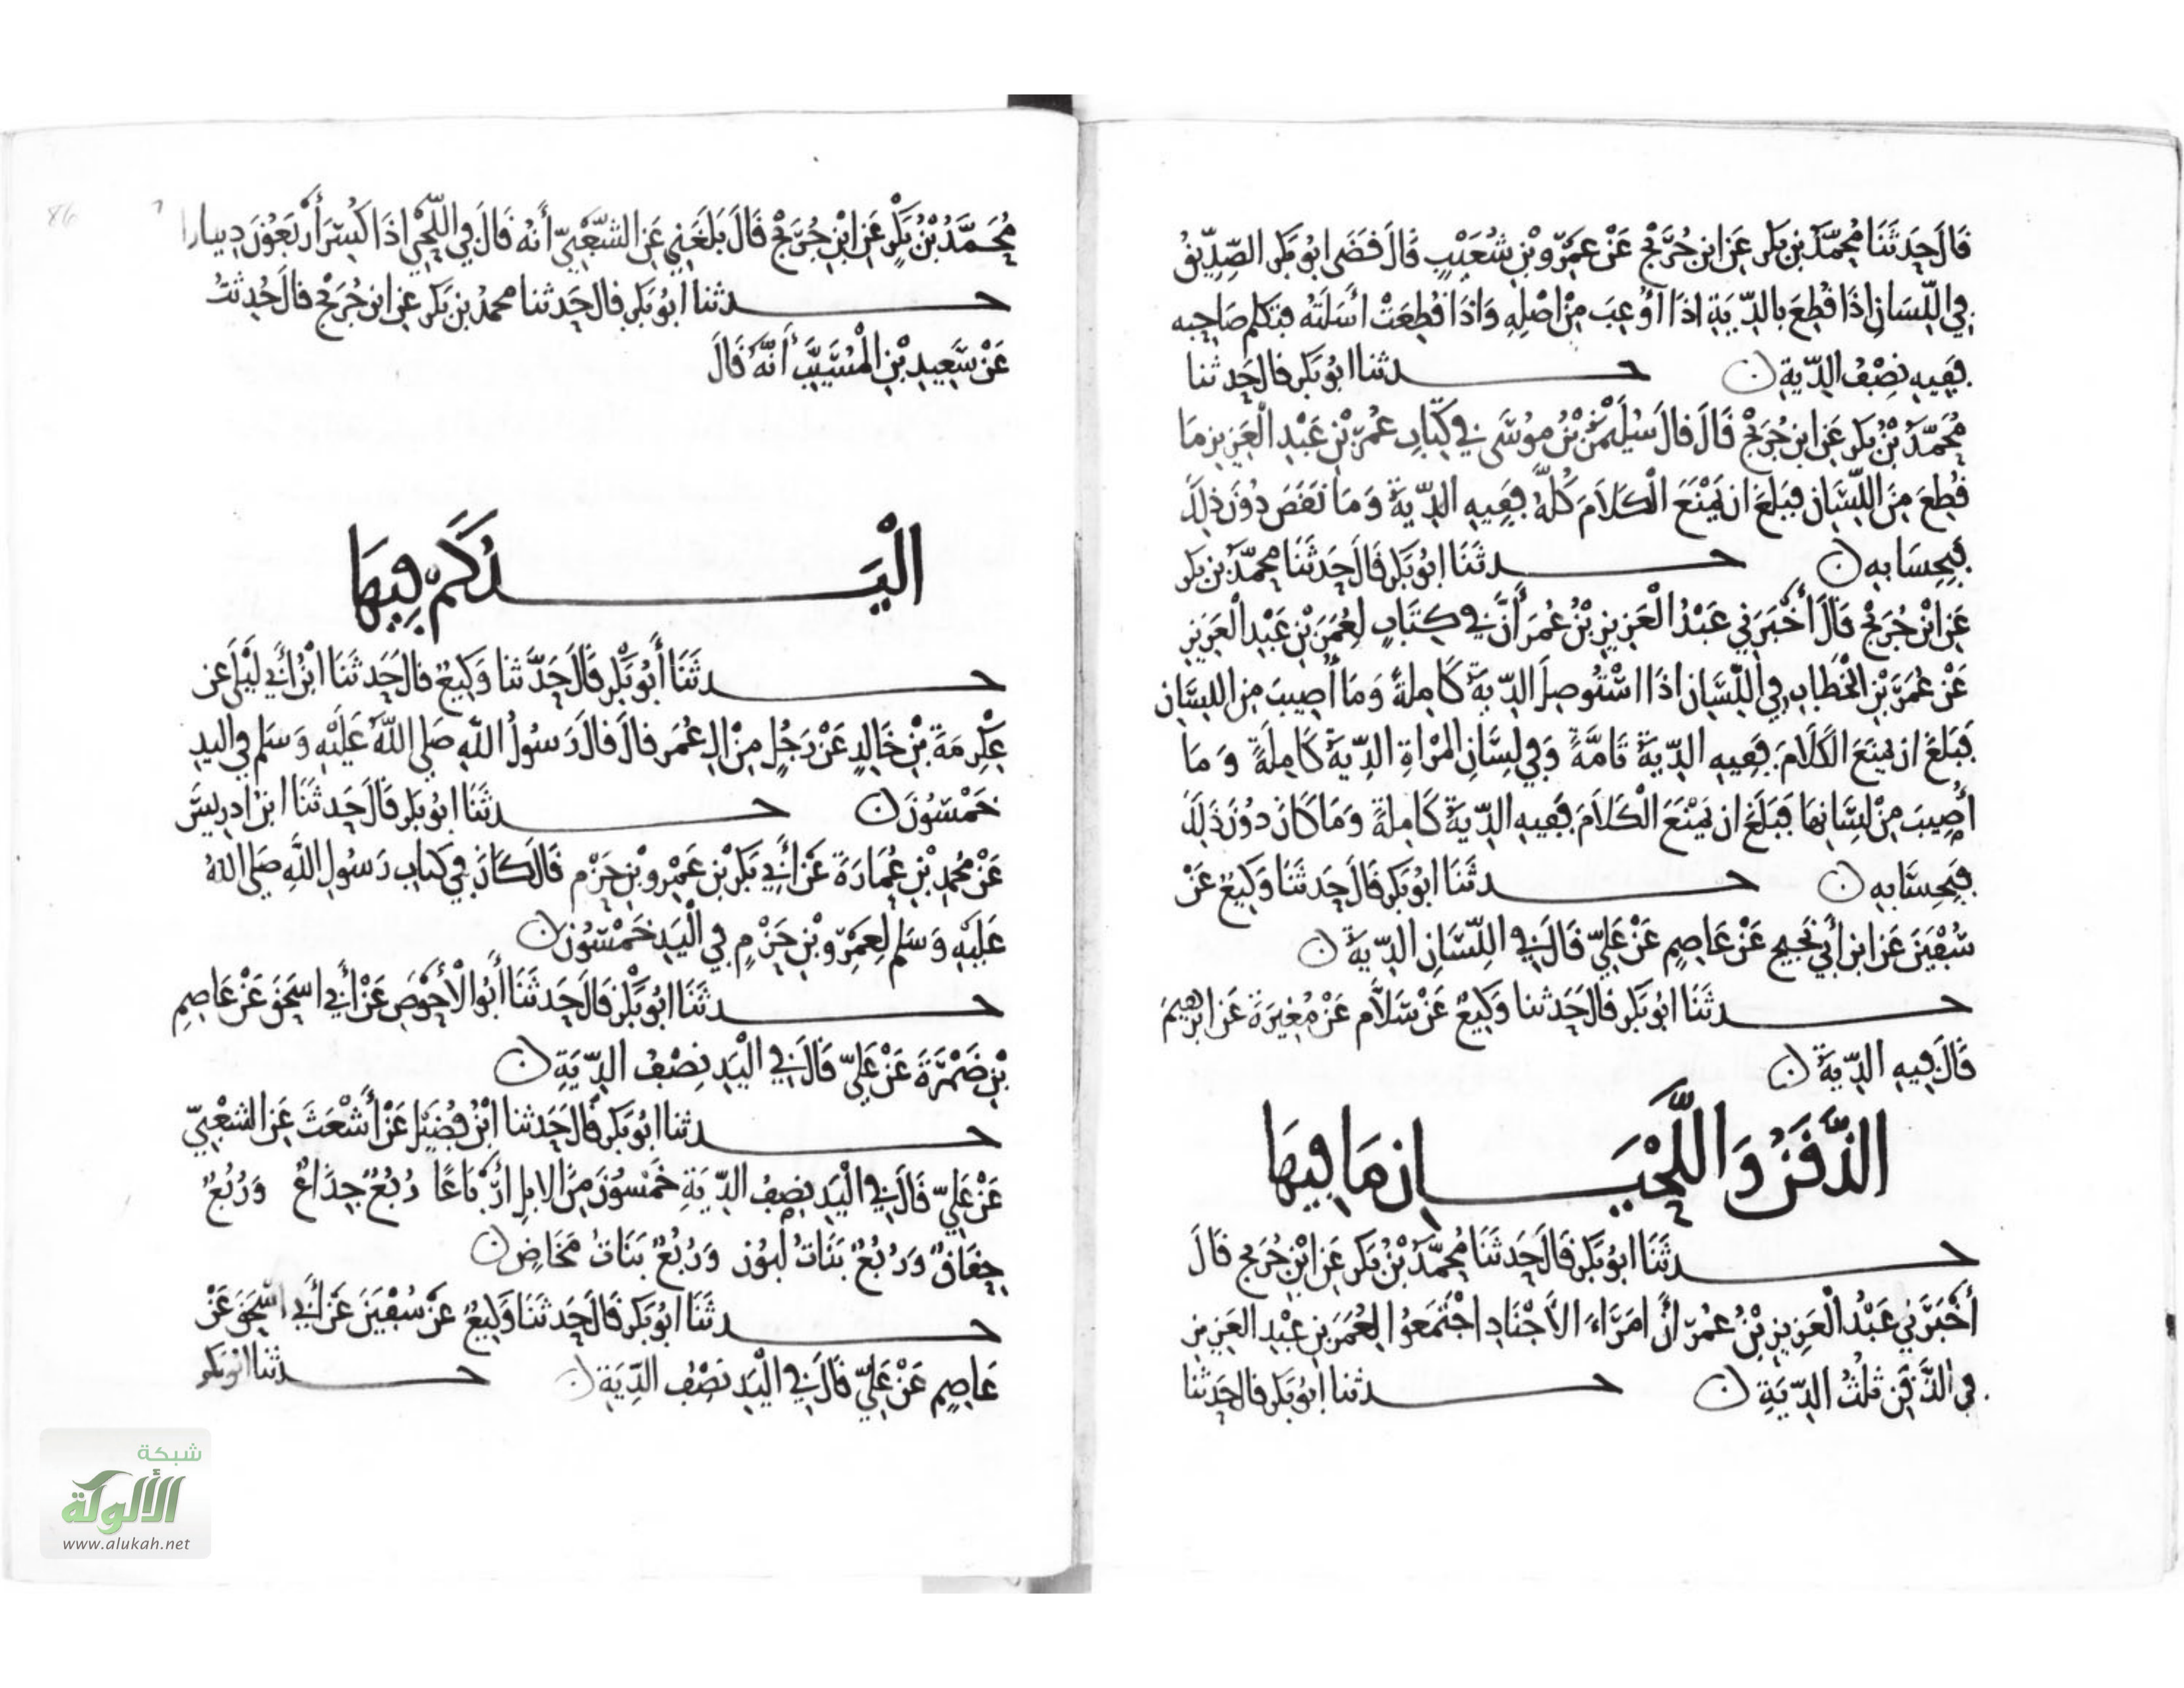 قَالَ حَدثَنَا مُحَمَّدُ بن بَكر عَن ابن جُرَيْج عَنْ عَمْرِو بْنِ شُعَيْبٍ قَالَ قَضَى ابُو بَكر الصِّدِّيقُ
فِي اللِّسَانِ اذَا قُطِعَ بالدِّيَةِ اذَا اُوْعِبَ مِنْ اصْلِهِ وَاذَا قُطِعَتْ اسَلَتُه فتَكلم صَاحِبه
فَفِيهِ نِصْفُ الدِّيَةِ ن حدثنا ابُو بَكر قال حَدثنا
مُحَمَّدُ بْنُ بَكر عَن ابن جُرَيْج قَالَ قالَ سُلَيْمَنُ بْنُ مُوسَى فِي كِتَابِ عُمَرَ بْنِ عَبْدِ الْعَزِيزِ مَا
قُطِعَ مِنَ اللِّسَانِ فبَلغَ ان يَمْنَعَ الْكَلَامَ كُلَّهُ فَفِيهِ الدِّيَةُ وَمَا نَقَصَ دُوْنَ ذلِكَ
فَبِحِسَابِهِ ن حدثَنَا ابُو بَكر قَالَ حَدثَنَا مُحَمَّدُ بْن بَكر
عَنِ ابْنِ جُرَيْجٍ قَالَ أَخْبَرَنِي عَبْدُ الْعَزِيزِ بْنُ عُمَرَ أَنَّ فِي كِتَابٍ لِعُمَرَ بْنِ عَبْدِ الْعَزِيزِ
عَنْ عُمَرَ بْنِ الْخَطابِ فِي اللِّسَانِ اذَا اسْتُوصِلَ الدِّيَةُ كَامِلةً وَمَا أُصِيبَ مِن اللِسَان
فَبَلغَ ان يَمنَعَ الكَلَامَ فَفِيهِ الدِّيَةُ تَامَّةً وَفِي لِسَانِ المَرْاةِ الدِّيَةُ كَامِلَةً وَمَا
أُصِيبَ مِنْ لِسَانِهَا فَبَلَغَ ان يَمْنَعَ الْكَلَامَ فَفِيهِ الدِّيَةُ كَامِلةً وَمَا كَانَ دُوْنَ ذَلِكَ
فَبِحِسَابِهِ ن حدثَنَا ابُو بَكر قَالَ حَدثَنَا وَكِيعٌ عَنْ
سُفْيَنَ عَنِ ابن أَبِي نَجِيحٍ عَنْ عَاصِمٍ عَنْ عَلِيٍّ قَالَ فِي اللِّسَانِ الدِّيَةُ ن
حدثَنَا ابُو بَكر قال حَدثنا وَكِيعٌ عَنْ سَلَّامٍ عَنْ مُغِيرَةَ عَن ابرهيمَ
قَالَ فِيهِ الدِّيَةُ ن
الذَّقَنُ وَاللَّحْيَانِ مَا فِيهَا
حدثَنَا ابُو بَكر قَالَ حَدثَنَا مُحَمَّدُ بْنُ بَكر عَنِ ابْنِ جُرَيْجٍ قَالَ
أَخْبَرَنِي عَبْدُ الْعَزِيزِ بْنُ عُمَرَ أَنَّ امَرَاءَ الأَجْنَادِ اجْتَمَعُوا لِعُمَرَ بنِ عبْدِ العَزِيزِ
فِي الذَّقَنِ ثلُثُ الدِّيَةِ ن حدثنا ابُو بَكر قال حَدثنا
مُحَمَّدُ بْنُ بَكْرٍ عَنِ ابْنِ جُرَيْجٍ قَالَ بَلَغَنِي عَنِ الشَّعْبِيِّ أَنهُ قَالَ فِي اللَّحْيِ اذَا كُسِرَ أَرْبَعُوْنَ دِينارا
حدثنا ابُو بَكر قال حَدثنا محمدُ بن بَكر عَن ابن جُرَيْج قالَ حُدِثتُ
عَنْ سَعِيدِ بْنِ الْمُسَيَّبِ أَنَّهُ قَالَ
الْيَدُ كَمْ فِيهَا
حدثَنَا أَبُو بَكْرٍ قَالَ حَدَّثنا وَكِيعٌ قالَ حَدثنَا ابْنُ أَبِي لَيْلَى عَن
عِكْرِمَةَ بْنِ خَالِدٍ عَنْ رَجُلٍ مِنْ الِ عُمَر قالَ قالَ رَسُولُ اللَّهِ صَلى اللَّهُ عَلَيْهِ وَسَلم فِي اليدِ
خَمْسُوْنَ ن حدثَنَا ابُو بَكر قَالَ حَدثَنَا ابن ادرِيسَ
عَنْ مُحمدِ بْنِ عُمَارَةَ عَنْ أَبِي بَكْرِ بْنِ عَمْرِو بْنِ حَزْمٍ قَالَ كَانَ فِي كتابِ رَسُولِ اللَّهِ صَلى اللَّهُ
عَلَيْهِ وَسَلم لِعَمْرِو بْنِ حَزْمٍ فِي الْيَدِ خَمْسُوْنَ ن
حدثَنَا ابُو بَكْر قَالَ حَدثَنَا أَبُو الْأَحْوَصِ عَنْ أَبِي اسحَقَ عَنْ عَاصِمِ
بْنِ ضَمْرَةَ عَنْ عَلِيٍّ قَالَ فِي الْيَدِ نِصْفُ الدِّيَةِ ن
حدثنا ابُو بَكر قَالَ حَدثنا ابْنُ فُضَيْلٍ عَنْ أَشْعَثَ عَنِ الشعْبِيِّ
عَنْ عَلِيٍّ قَالَ فِي الْيَدِ نِصْفُ الدِّيَةِ خَمْسُوْنَ مِنَ الابِلِ ارْبَاعًا رُبُعٌ جِذَاعٌ وَرُبُعٌ
حِقَاقٌ وَرُبُعٌ بَنَاتُ لَبُوْنٍ وَرُبُعٌ بَنَاتُ مَخَاضٍ ن
حدثَنَا ابُو بَكر قَالَ حَدثَنَا وَكِيعٌ عَنْ سُفْيَنَ عَنْ أَبِي اسْحَقَ عَنْ
عَاصِمٍ عَنْ عَلِيٍّ قَالَ فِي الْيَدِ نصْفُ الدِّيَةِ ن حدثنا ابُو بَكر
86
شبكة
الألوكة
www.alukah.net